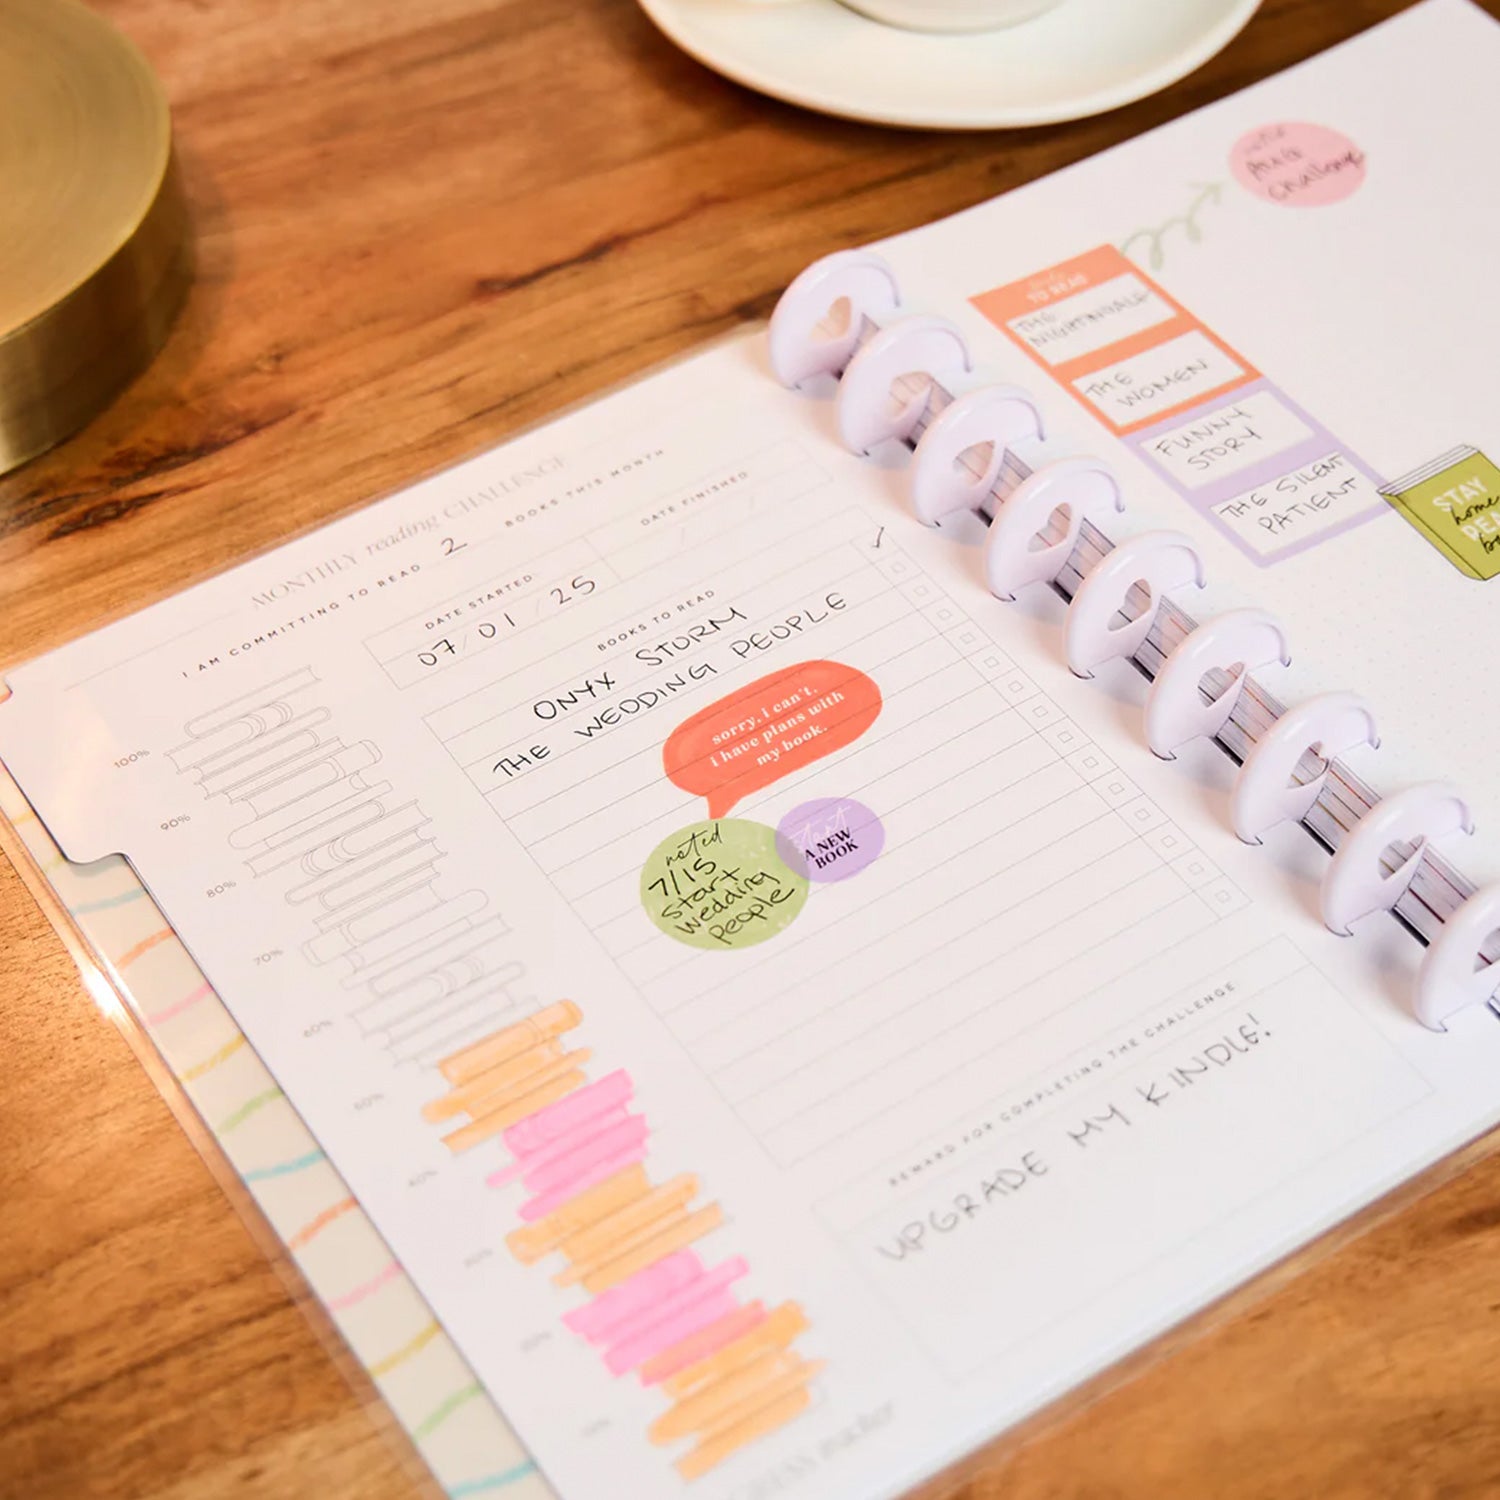 MONTHLY reading CHALLENGE
I AM COMMITTING TO READ 2 BOOKS THIS MONTH
DATE STARTED
07/01/25
DATE FINISHED
BOOKS TO READ
ONYX STORM
THE WEDDING PEOPLE
sorry, i can't.
i have plans with
my book.
noted
7/15
start
wedding
people
start
A NEW
BOOK
100%
90%
80%
70%
60%
REWARD FOR COMPLETING THE CHALLENGE
UPGRADE MY KINDLE!
Challenge
TO READ
THE
NIGHTINGALE
THE
WOMEN
FUNNY
STORY
THE SILENT
PATIENT
STAY
home